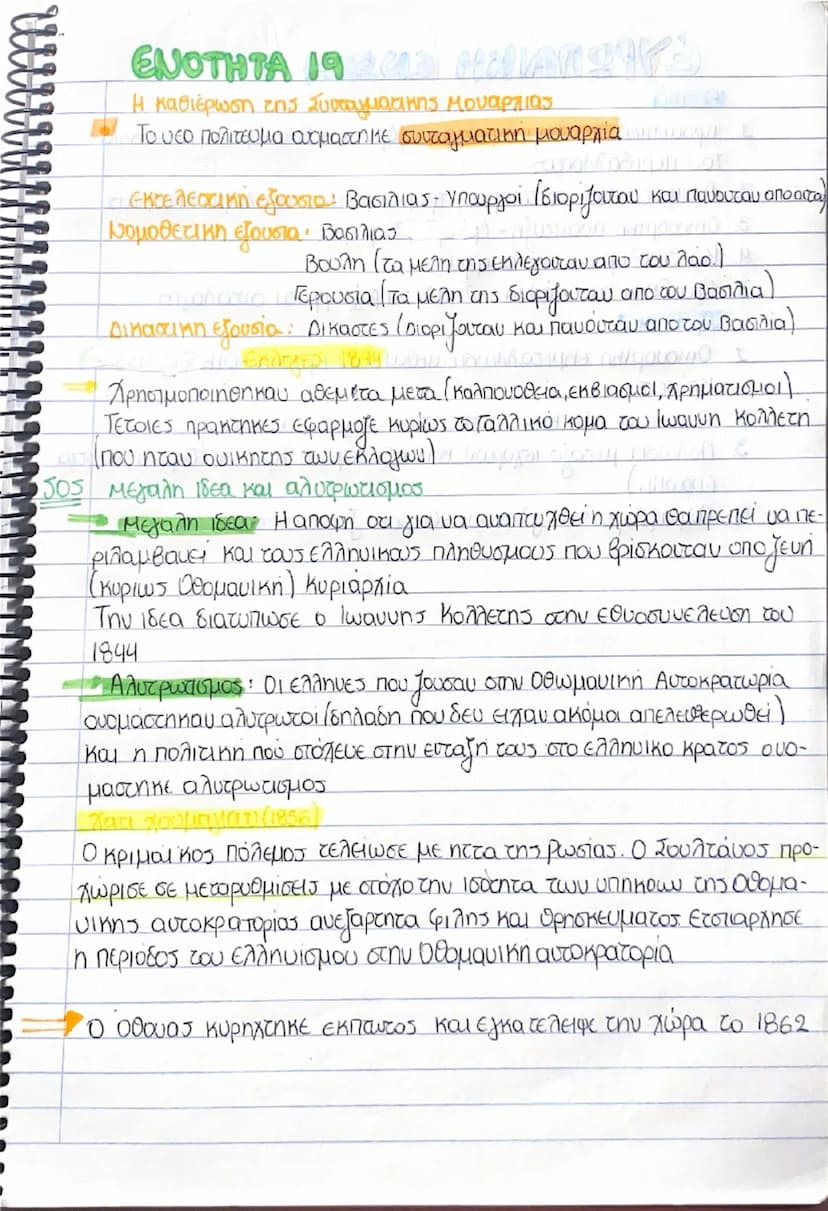 ΕΝΟΤΗΤΑ 19
Η καθιέρωση της Συνταγματικης Μοναρχίας
Το νεο πολιτευμα ονομαστηκε συνταγματική μοναρχία
Εκτελεστική εξουσια: Βασιλιας- Υπουργοί (διορίζονταν και παυονταν απο αυτα)
Νομοθετική εξουσια: Βασιλιας
Βουλη (τα μελη της εκλέγονταν απο τον λαο!)
Γερουσια (τα μέλη της διορίζονταν απο τον Βασιλια)
Δικαστικη εξουσία: Δικαστες (διορίζονταν και παυόνταν απο τον Βασιλια)
Εκλογες 1844
Χρησιμοποιηθηκαν αθεμιτα μεσα (καλπονοθεια, εκβιασμοι, χρηματισμοι)
Τετοιες πρακτηκες εφαρμοζε κυρίως το Γαλλικό κομα του Ιωαννη Κολλετη
(που ηταν ονικητης των εκλογων)
SOS Μεγαλη ιδεα και αλυτρωτισμος
Μεγαλη ιδεα: Η αποψη οτι για να αναπτυχθεί η χώρα θα πρεπει να πε-
ριλαμβανει και τους ελληνικους πληθυσμους που βρίσκονταν υπο ξενη
(κυριως Οθομανική) κυριαρχία
Την ιδεα διατυπωσε ο Ιωαννης Κολλετης στην εθνοσυνελευση του
1844
Αλυτρωτισμος: Οι ελληνες που ζουσαν στην Οθωμανική Αυτοκρατωρία
ονομάστηκαν αλυτρωτοι (δηλαδη που δεν ειχαν ακόμα απελευθερωθεί)
και η πολιτική που στόχευε στην ενταξή τους στο ελληνικο κρατος ονο-
μαστηκε αλυτρωτισμος
Χατι χουμαγιουν (1856)
Ο κριμαϊκος πόλεμος τελείωσε με ηττα της ρωσίας. Ο Σουλτάνος προ-
χώρισε σε μεταρυθμίσεις με στόχο την ισότητα των υπηκοων της Οθομα-
νικης αυτοκρατορίας ανεξαρτητα φιλης και θρησκευματος. Ετσι αρχησε
η περίοδος του ελληνισμου στην Οθομανικη αυτοκρατορία
Ο όθωνας κυρηχτηκε εκπτωτος και εγκατελειψε την χώρα το 1862